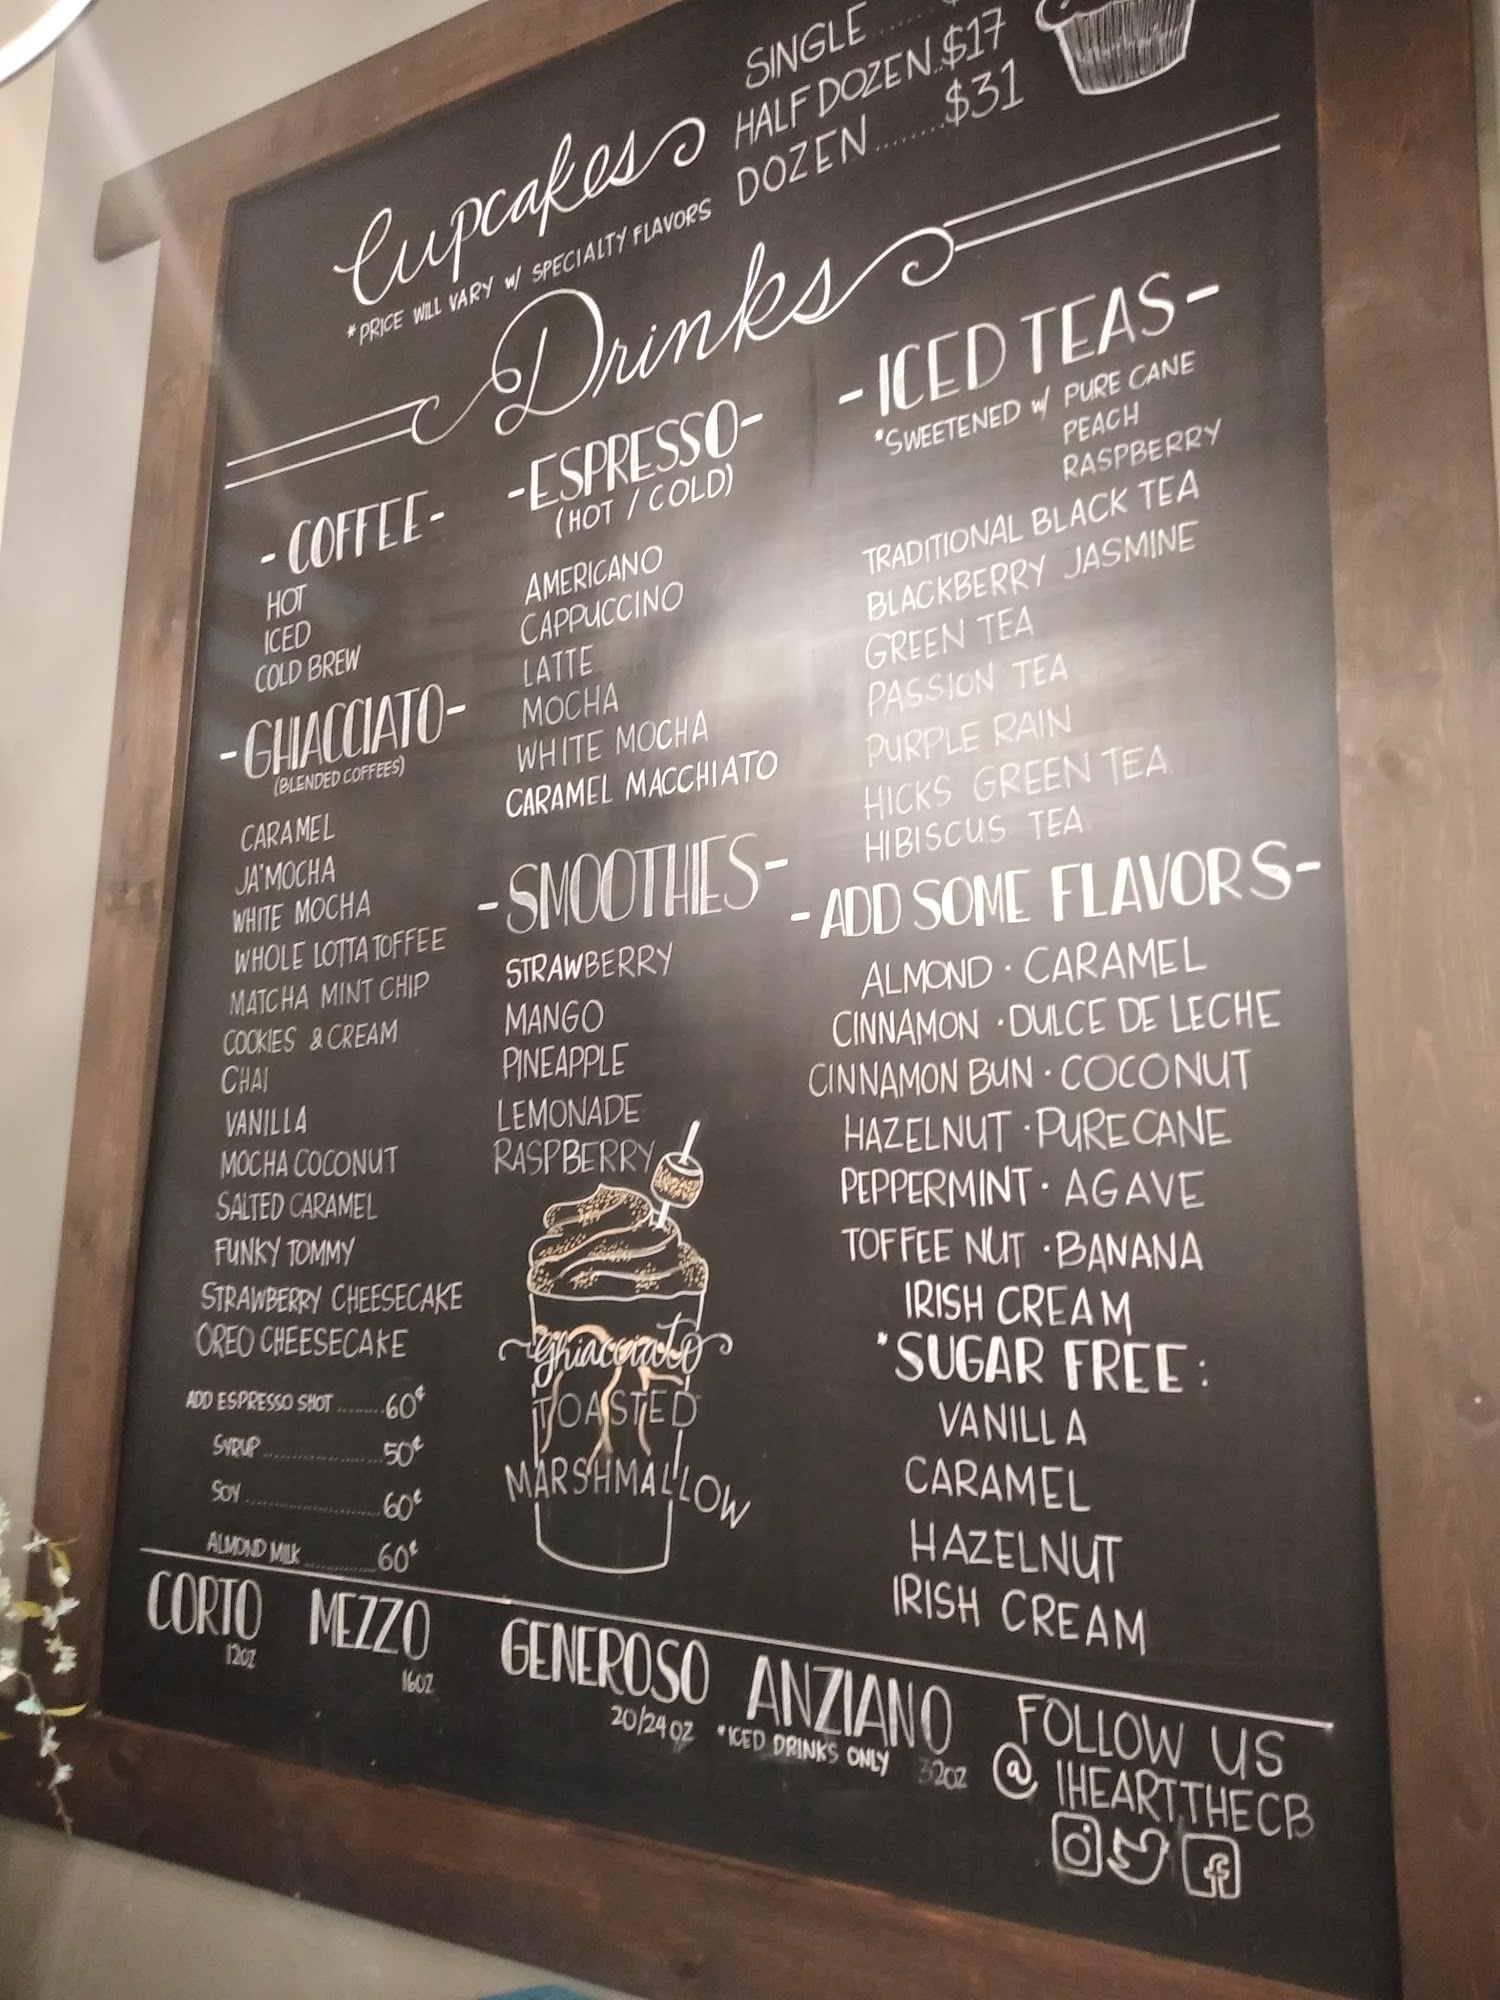 Cupcakes
*PRICE WILL VARY w/ SPECIALTY FLAVORS
SINGLE
HALF DOZEN..$17
DOZEN........$31
Drinks
-COFFEE-
HOT
ICED
COLD BREW
-GHIACCIATO-
(BLENDED COFFEES)
CARAMEL
JA'MOCHA
WHITE MOCHA
WHOLE LOTTA TOFFEE
MATCHA MINT CHIP
COOKIES & CREAM
CHAI
VANILLA
MOCHA COCONUT
SALTED CARAMEL
FUNKY TOMMY
STRAWBERRY CHEESECAKE
OREO CHEESECAKE
ADD ESPRESSO SHOT........60¢
SYRUP....................50¢
SOY......................60¢
ALMOND MILK..........60¢
-ESPRESSO-
(HOT / COLD)
AMERICANO
CAPPUCCINO
LATTE
MOCHA
WHITE MOCHA
CARAMEL MACCHIATO
-SMOOTHIES-
STRAWBERRY
MANGO
PINEAPPLE
LEMONADE
RASPBERRY
ghiacciato
TOASTED
MARSHMALLOW
-ICED TEAS-
*SWEETENED w/ PURE CANE
PEACH
RASPBERRY
TRADITIONAL BLACK TEA
BLACKBERRY JASMINE
GREEN TEA
PASSION TEA
PURPLE RAIN
HICKS GREEN TEA
HIBISCUS TEA
-ADD SOME FLAVORS-
ALMOND · CARAMEL
CINNAMON · DULCE DE LECHE
CINNAMON BUN · COCONUT
HAZELNUT · PURE CANE
PEPPERMINT · AGAVE
TOFFEE NUT · BANANA
IRISH CREAM
*SUGAR FREE:
VANILLA
CARAMEL
HAZELNUT
IRISH CREAM
CORTO
12OZ
MEZZO
16OZ
GENEROSO
20/24 OZ
ANZIANO
*ICED DRINKS ONLY 32OZ
FOLLOW US
@ IHEARTTHECB